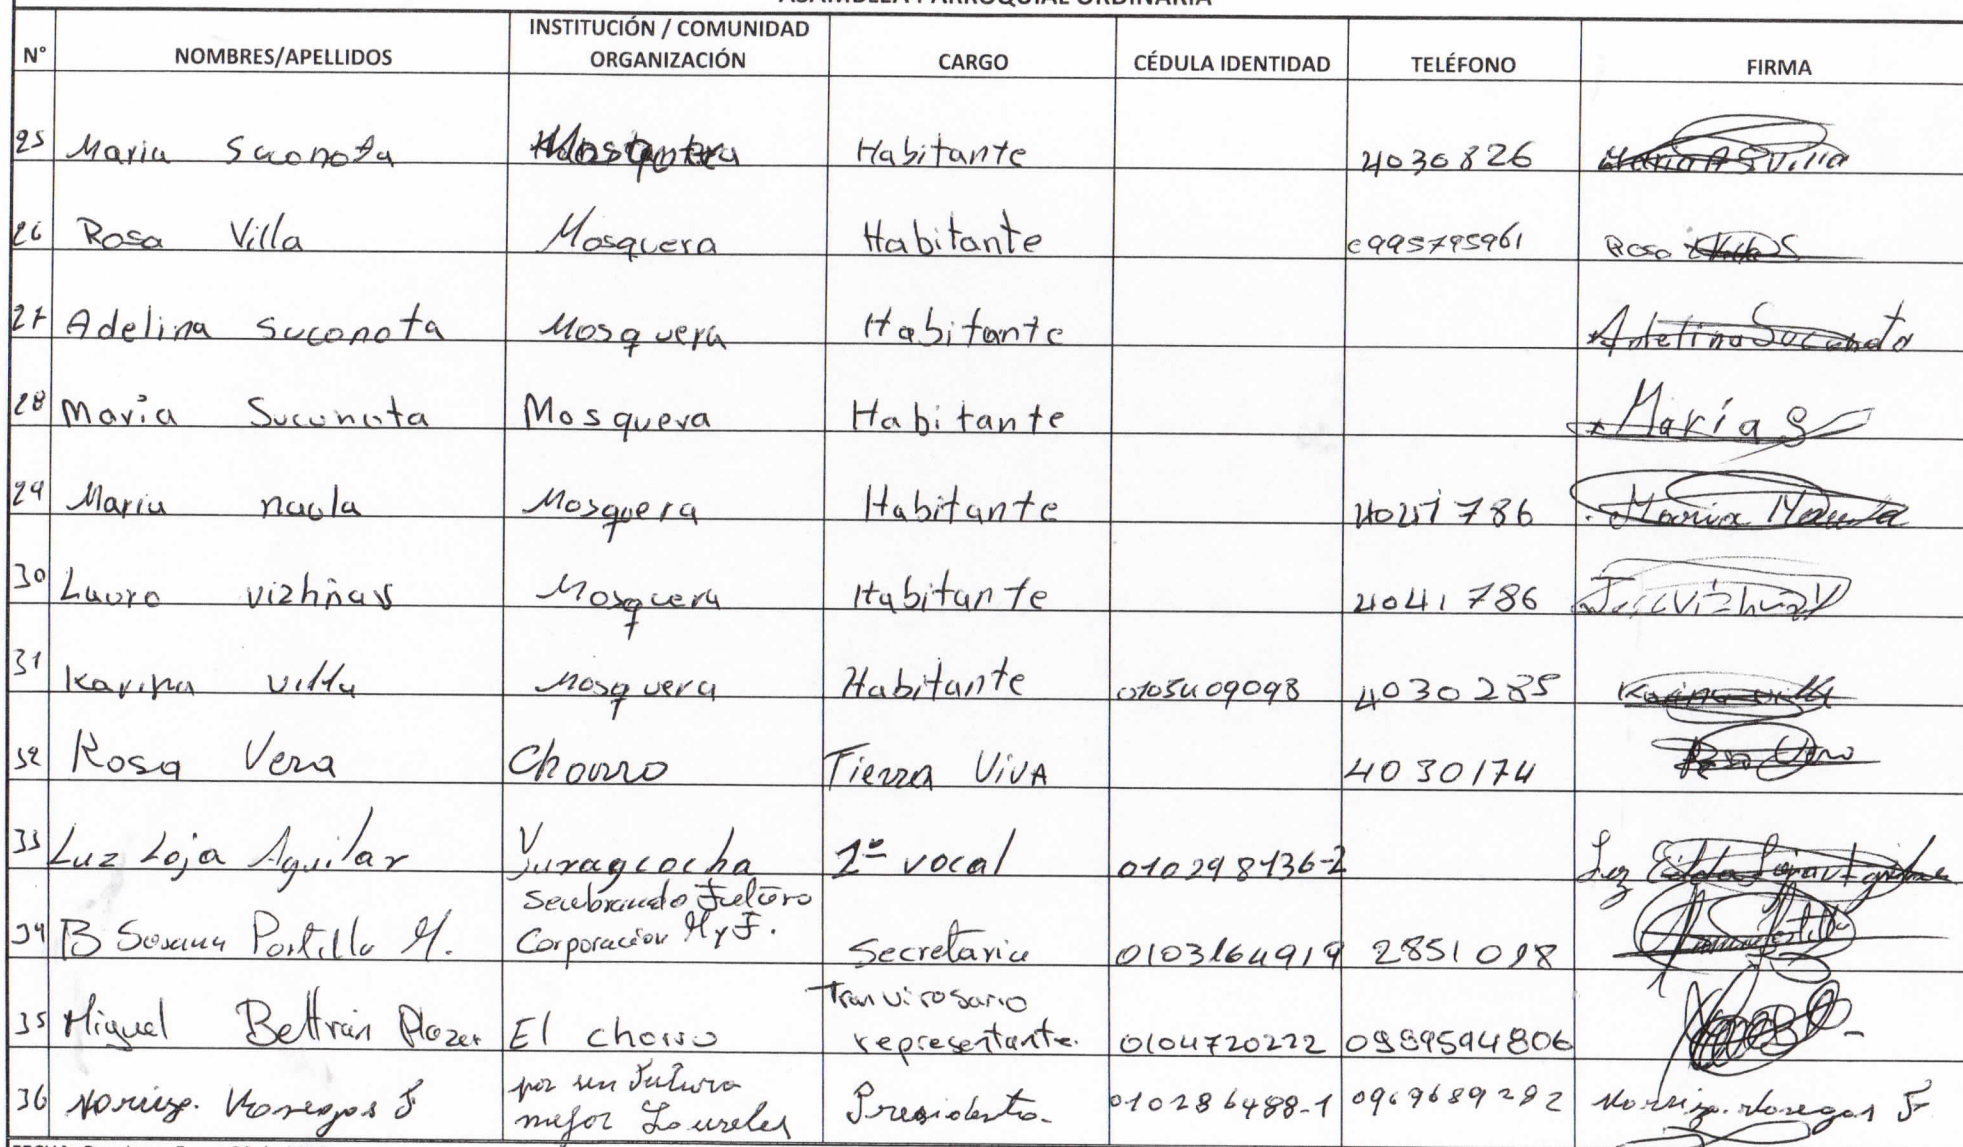 ASAMBLEA PARROQUIAL ORDINARIA
N° NOMBRES/APELLIDOS INSTITUCIÓN / COMUNIDAD ORGANIZACIÓN CARGO CÉDULA IDENTIDAD TELÉFONO FIRMA
25 Maria Suconota Mosquera Habitante 4030826 Maria A S Villa
26 Rosa Villa Mosquera Habitante 0995795961 Rosa
27 Adelina Suconota Mosquera Habitante Adelina Suconota
28 Maria Suconota Mosquera Habitante María S
29 Maria naula Mosquera Habitante 4041786 Maria Naula
30 Lauro vizhñay Mosquera Habitante 4041786
31 Karina villa Mosquera Habitante 0105409098 4030285 Karina villa
32 Rosa Vera Chorro Tierra Viva 4030174 Rosa Vera
33 Luz Loja Aguilar Yuragcocha 2º vocal 010298136-2 Luz Loja Aguilar
34 B Susana Portilla M. Sembrando Futuro Corporación M y F. Secretaria 0103164919 2851098
35 Miguel Beltrán El chorro representante. 0104720222 0989594806
36 por un Futuro mejor Laureles Presidente. 010286488-1 0969689292